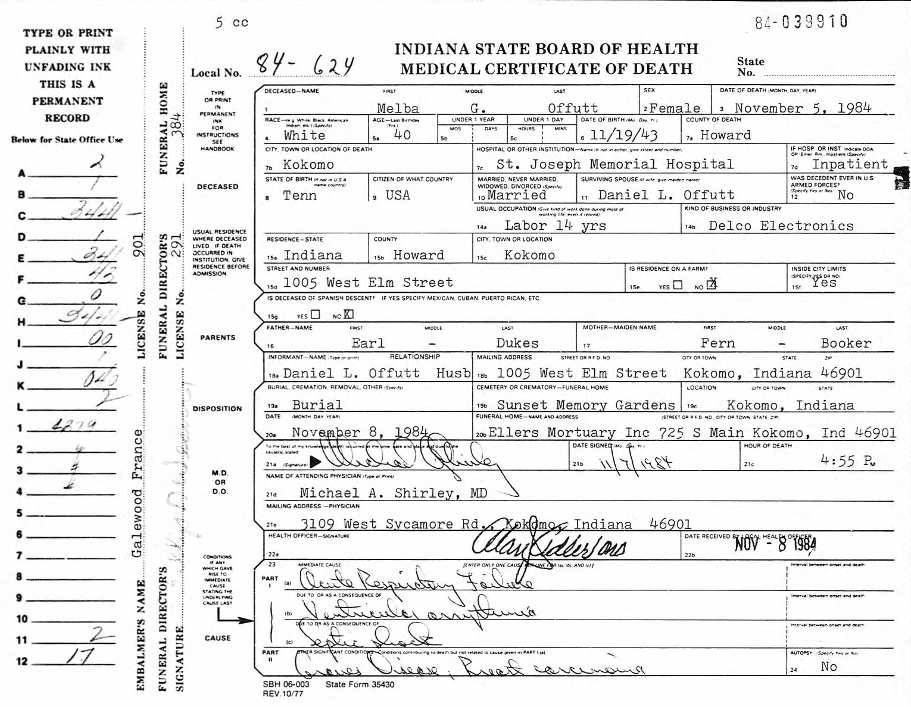 5 cc
84-039910
TYPE OR PRINT
PLAINLY WITH
UNFADING INK
THIS IS A
PERMANENT
RECORD
Below for State Office Use
INDIANA STATE BOARD OF HEALTH
MEDICAL CERTIFICATE OF DEATH
Local No. 84-624
State No.
TYPE OR PRINT IN PERMANENT INK FOR INSTRUCTIONS SEE HANDBOOK
DECEASED—NAME FIRST MIDDLE LAST SEX DATE OF DEATH (MONTH, DAY, YEAR)
1 Melba G. Offutt 2 Female 3 November 5, 1984
RACE AGE—Last Birthday UNDER 1 YEAR UNDER 1 DAY DATE OF BIRTH COUNTY OF DEATH
MOS DAYS HOURS MINS
4 White 5a 40 5b 5c 6 11/19/43 7a Howard
CITY, TOWN OR LOCATION OF DEATH HOSPITAL OR OTHER INSTITUTION IF HOSP OR INST
7b Kokomo 7c St. Joseph Memorial Hospital Inpatient
DECEASED
STATE OF BIRTH CITIZEN OF WHAT COUNTRY MARRIED, NEVER MARRIED, WIDOWED, DIVORCED SURVIVING SPOUSE WAS DECEDENT EVER IN U.S ARMED FORCES?
8 Tenn 9 USA 10 Married 11 Daniel L. Offutt 12 No
USUAL OCCUPATION KIND OF BUSINESS OR INDUSTRY
14a Labor 14 yrs 14b Delco Electronics
USUAL RESIDENCE WHERE DECEASED LIVED IF DEATH OCCURRED IN INSTITUTION, GIVE RESIDENCE BEFORE ADMISSION
RESIDENCE—STATE COUNTY CITY, TOWN OR LOCATION
15a Indiana 15b Howard 15c Kokomo
STREET AND NUMBER IS RESIDENCE ON A FARM? INSIDE CITY LIMITS
15d 1005 West Elm Street 15e YES NO X 15f Yes
IS DECEASED OF SPANISH DESCENT? IF YES SPECIFY MEXICAN, CUBAN, PUERTO RICAN, ETC
15g YES NO X
PARENTS
FATHER—NAME FIRST MIDDLE LAST MOTHER—MAIDEN NAME FIRST MIDDLE LAST
16 Earl - Dukes 17 Fern - Booker
INFORMANT—NAME (Type or print) RELATIONSHIP MAILING ADDRESS STREET OR R F D NO CITY OR TOWN STATE ZIP
18a Daniel L. Offutt Husb 18b 1005 West Elm Street Kokomo, Indiana 46901
DISPOSITION
BURIAL, CREMATION, REMOVAL, OTHER (Specify) CEMETERY OR CREMATORY—FUNERAL HOME LOCATION CITY OR TOWN STATE
19a Burial 19b Sunset Memory Gardens 19c Kokomo, Indiana
DATE (MONTH, DAY, YEAR) FUNERAL HOME—NAME AND ADDRESS (STREET OR R F D NO, CITY OR TOWN, STATE, ZIP)
20a November 8, 1984 20b Ellers Mortuary Inc 725 S Main Kokomo, Ind 46901
M.D. OR D.O.
DATE SIGNED HOUR OF DEATH
21a (Signature) 21b 11/7/1984 21c 4:55 P.M
NAME OF ATTENDING PHYSICIAN (Type or Print)
21d Michael A. Shirley, MD
MAILING ADDRESS—PHYSICIAN
21e 3109 West Sycamore Rd., Kokomo, Indiana 46901
HEALTH OFFICER—SIGNATURE DATE RECEIVED BY LOCAL HEALTH OFFICER
22a 22b NOV - 8 1984
CONDITIONS IF ANY WHICH GAVE RISE TO IMMEDIATE CAUSE STATING THE UNDERLYING CAUSE LAST
CAUSE
23 IMMEDIATE CAUSE Interval between onset and death
PART I (a) Acute Respiratory Failure
DUE TO OR AS A CONSEQUENCE OF Interval between onset and death
(b) Ventricular arrythmia
DUE TO OR AS A CONSEQUENCE OF Interval between onset and death
(c) Septic shock
PART II OTHER SIGNIFICANT CONDITIONS—Conditions contributing to death but not related to cause given in PART I (a) AUTOPSY
Graves Disease, Breast carcinoma 24 No
SBH 06-003 State Form 35430
REV.10/77
A 2
B
C 3441
D 1
E 341
F 42
G 0
H 3441
I 00
J
K 043
L 2
1 4279
2
3
4
5
6
7
8
9
10
11 2
12 17
EMBALMER'S NAME Galewood France LICENSE No. 901
FUNERAL DIRECTOR'S SIGNATURE
FUNERAL DIRECTOR'S LICENSE No. 291
FUNERAL HOME No. 384